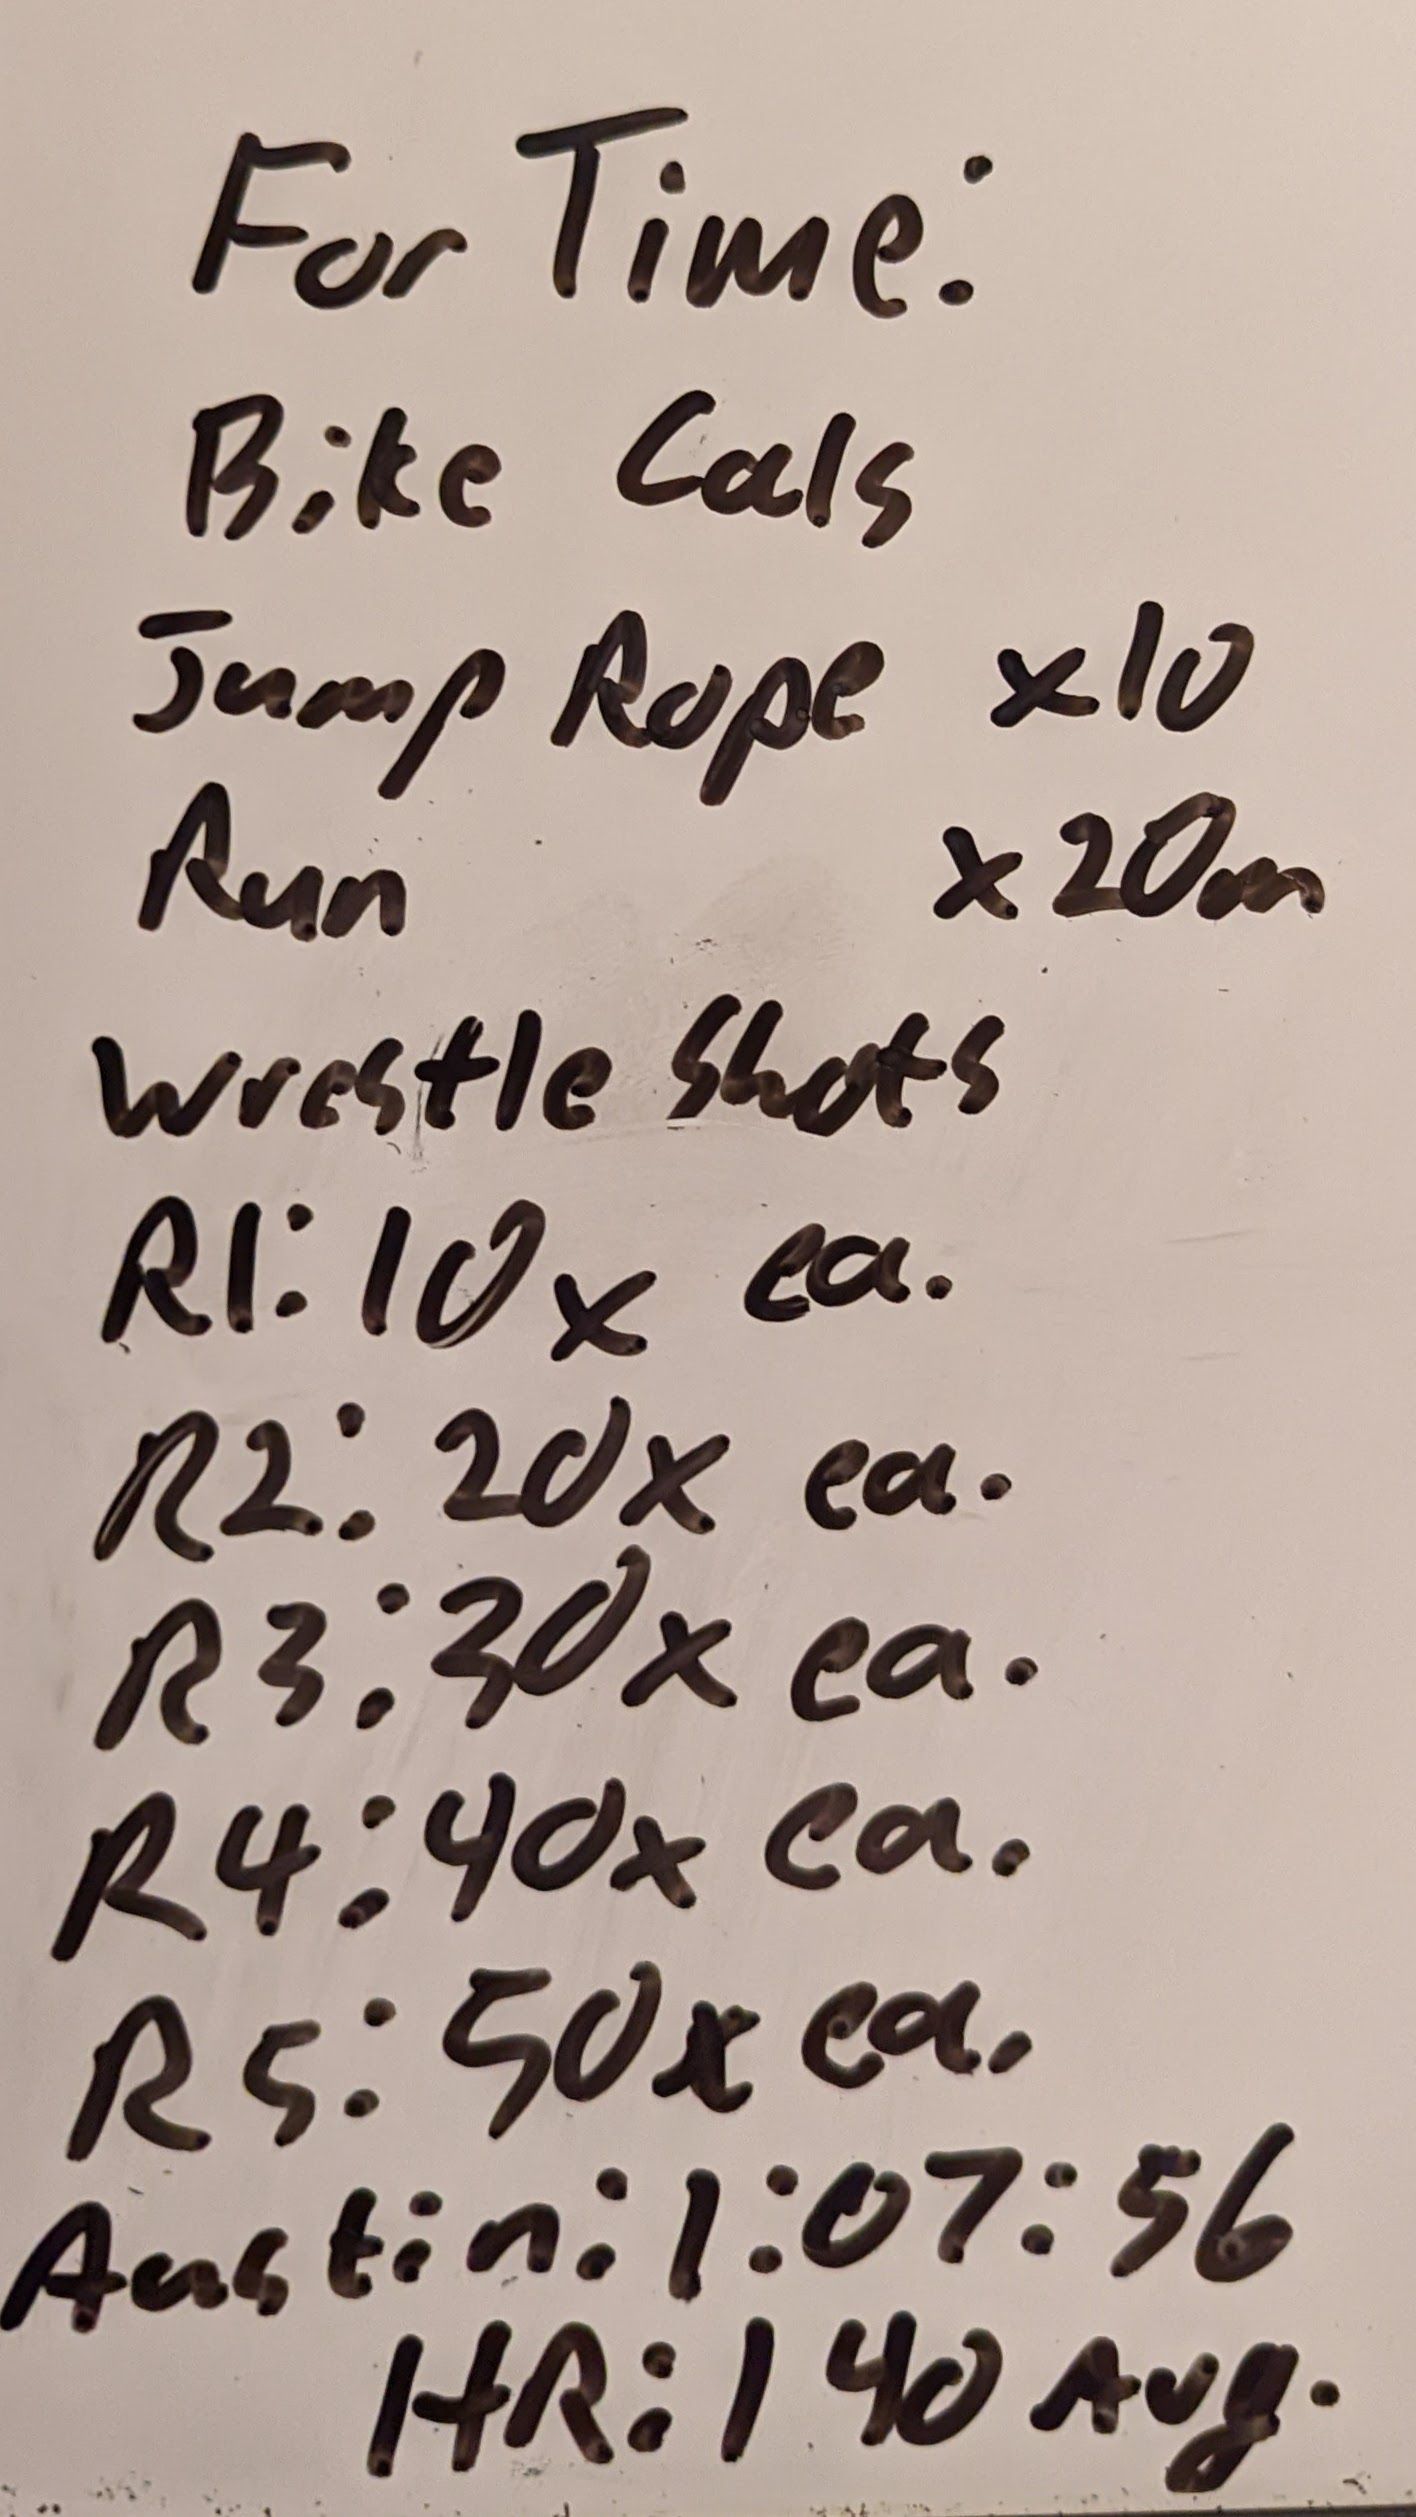 For Time:
Bike Cals
Jump Rope x10
Run x20m
Wrestle Shots
R1: 10x ea.
R2: 20x ea.
R3: 30x ea.
R4: 40x ea.
R5: 50x ea.
Austin: 1:07:56
HR: 140 Avg.